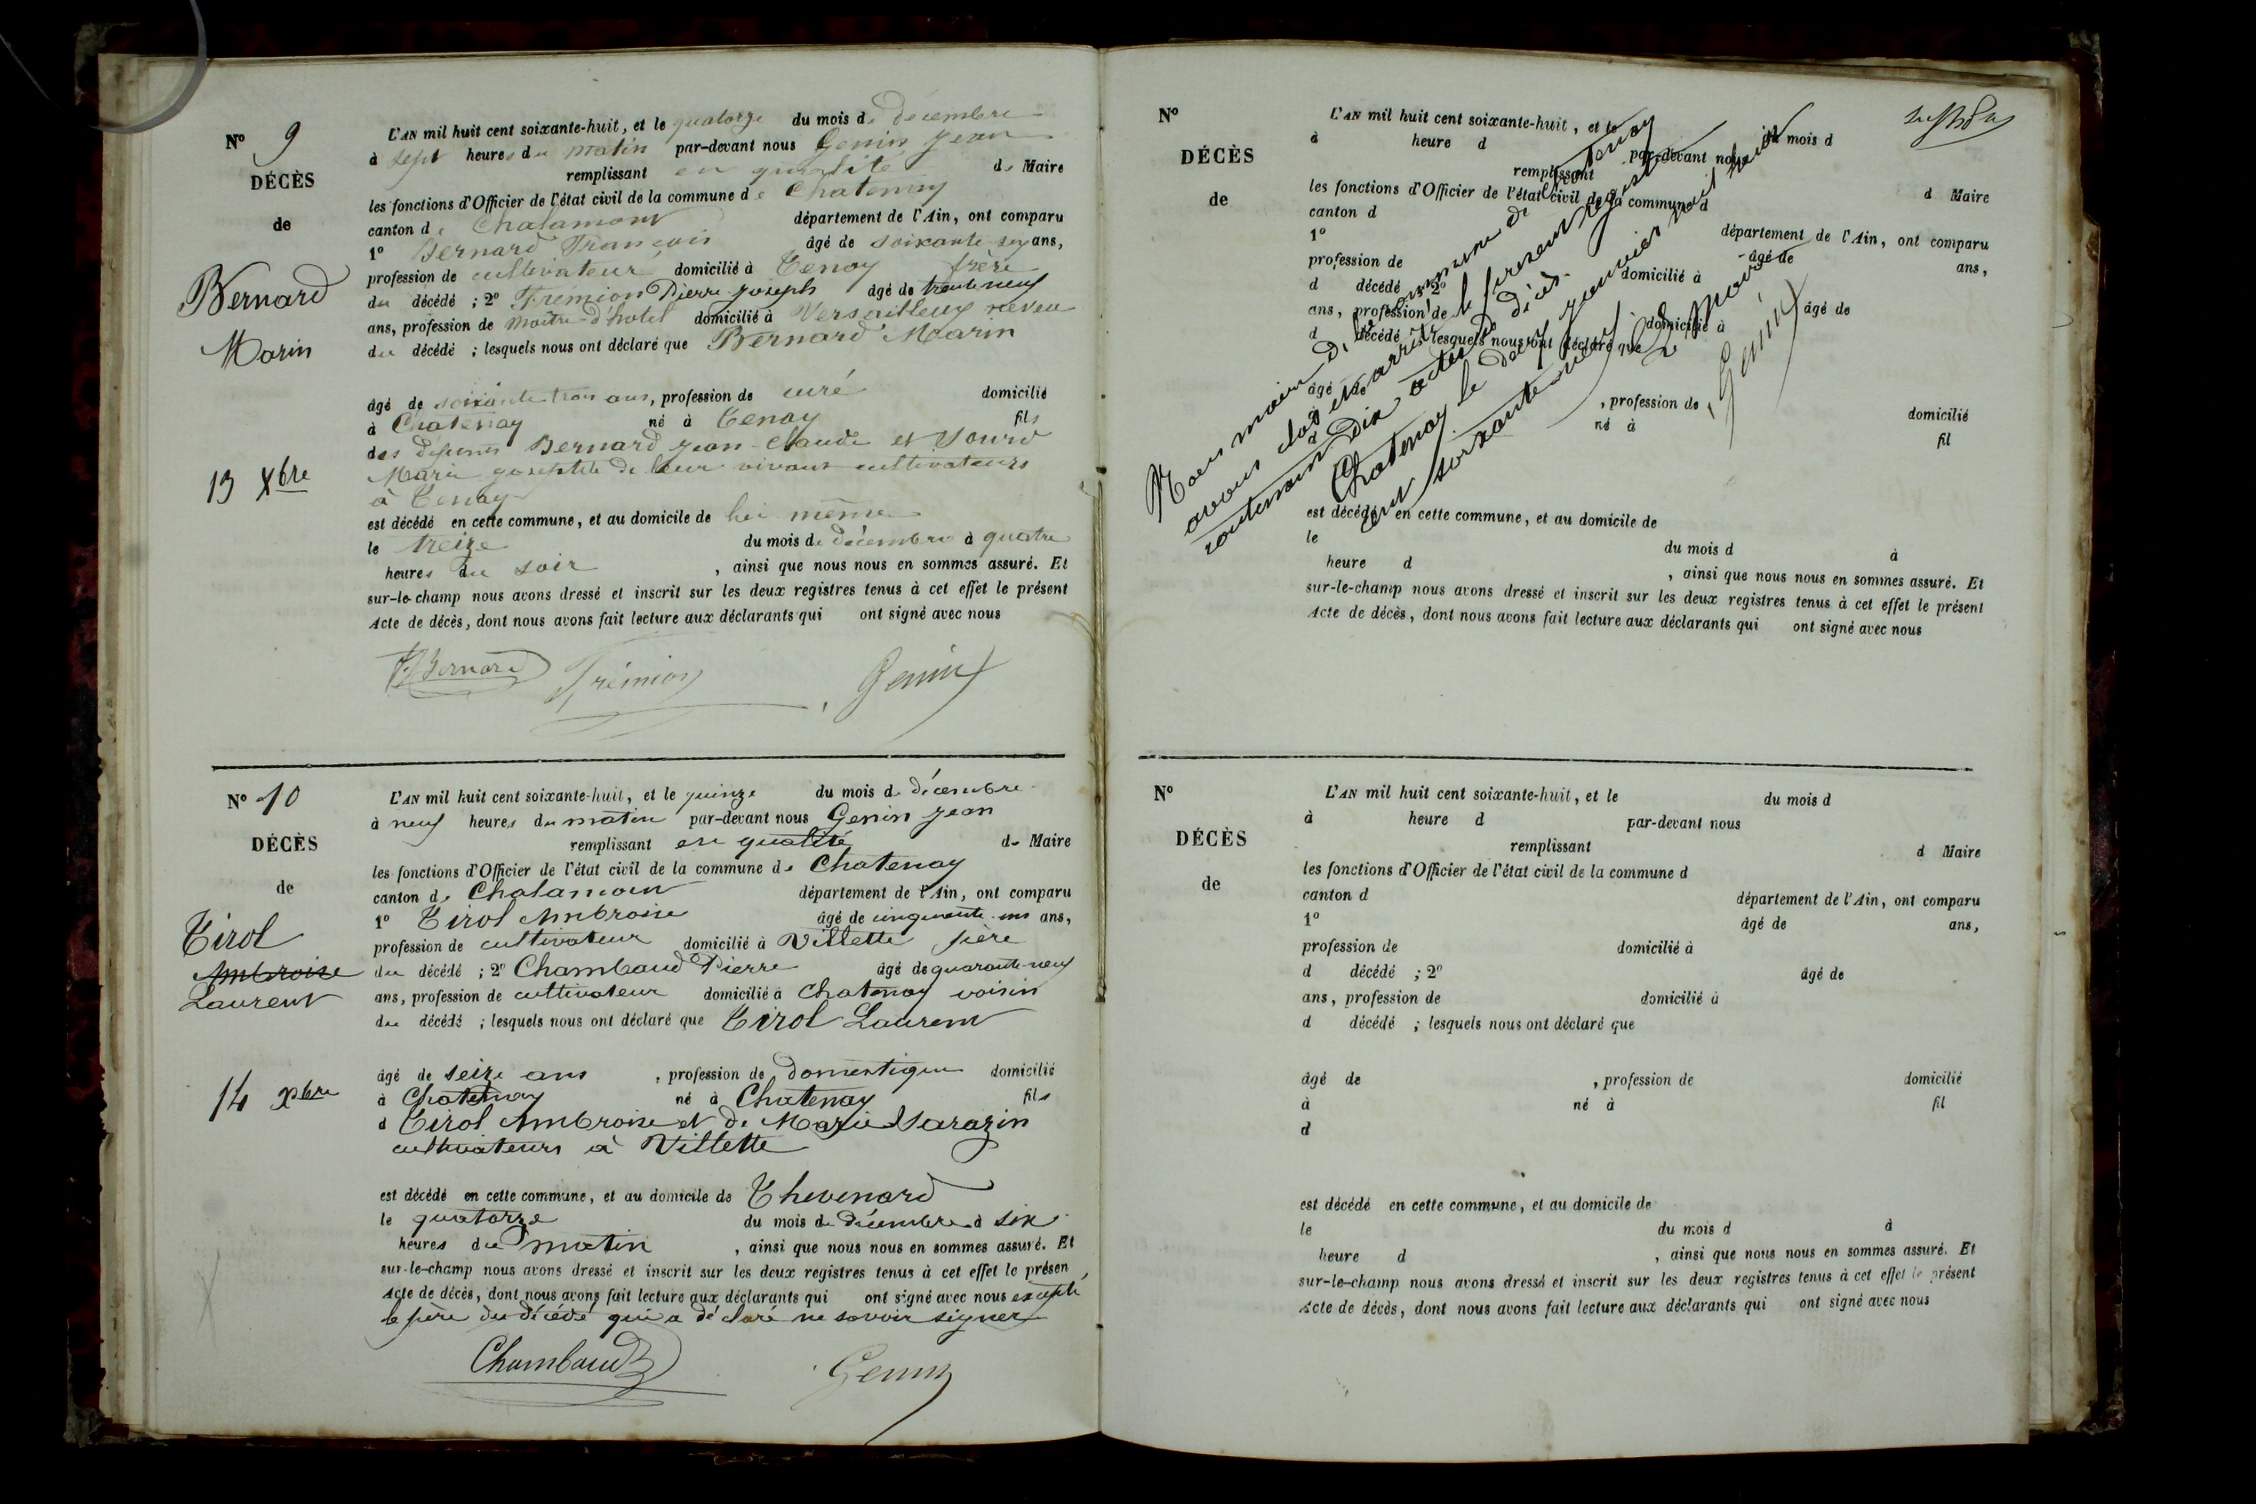 Nº 9
DÉCÈS
de
Bernard
Marin
13 Xbre
L'AN mil huit cent soixante-huit, et le quatorze du mois de décembre
à sept heures du matin par-devant nous Genin Jean
remplissant en qualité de Maire
les fonctions d'Officier de l'état civil de la commune de Chatenay
canton de Chalamont département de l'Ain, ont comparu
1º Bernard François âgé de soixante six ans,
profession de cultivateur domicilié à Tenay frère
du décédé ; 2º Frémion Pierre Joseph âgé de trente neuf
ans, profession de maitre d'hotel domicilié à Versailleux neveu
du décédé ; lesquels nous ont déclaré que Bernard Marin
âgé de soixante trois ans, profession de curé domicilié
à Chatenay né à Tenay fils
des défunts Bernard Jean-Claude et Jourd
Marie Josephte de leur vivant cultivateurs
à Tenay
est décédé en cette commune, et au domicile de lui même
le treize du mois de décembre à quatre
heures du soir , ainsi que nous nous en sommes assuré. Et
sur-le-champ nous avons dressé et inscrit sur les deux registres tenus à cet effet le présent
Acte de décès, dont nous avons fait lecture aux déclarants qui ont signé avec nous
Bernard Frémion Genin
Nº 10
DÉCÈS
de
Tirol
Ambroise
Laurent
14 Xbre
L'AN mil huit cent soixante-huit, et le quinze du mois de décembre
à neuf heures du matin par-devant nous Genin Jean
remplissant en qualité de Maire
les fonctions d'Officier de l'état civil de la commune de Chatenay
canton de Chalamont département de l'Ain, ont comparu
1º Tirol Ambroise âgé de cinquante ans,
profession de cultivateur domicilié à Villette père
du décédé ; 2º Chambaud Pierre âgé de quarante-neuf
ans, profession de cultivateur domicilié à Chatenay voisin
du décédé ; lesquels nous ont déclaré que Tirol Laurent
âgé de seize ans , profession de domestique domicilié
à Chatenay né à Chatenay fils
d Tirol Ambroise et de Marie Sarazin
cultivateurs à Villette
est décédé en cette commune, et au domicile de Thevenard
le quatorze du mois de décembre à six
heures du matin , ainsi que nous nous en sommes assuré. Et
sur-le-champ nous avons dressé et inscrit sur les deux registres tenus à cet effet le présen
Acte de décès, dont nous avons fait lecture aux déclarants qui ont signé avec nous excepté
le père du décédé qui a déclaré ne savoir signer
Chambaud Genin
Nº
DÉCÈS
de
L'AN mil huit cent soixante-huit, et le du mois d
à heure d par-devant nous
remplissant d Maire
les fonctions d'Officier de l'état civil de la commune d
canton d département de l'Ain, ont comparu
1º âgé de ans,
profession de domicilié à
d décédé ; 2º âgé de
ans, profession de domicilié à
d décédé ; lesquels nous ont déclaré que
âgé de , profession de domicilié
à né à fil
d
est décédé en cette commune, et au domicile de
le du mois d à
heure d , ainsi que nous nous en sommes assuré. Et
sur-le-champ nous avons dressé et inscrit sur les deux registres tenus à cet effet le présent
Acte de décès, dont nous avons fait lecture aux déclarants qui ont signé avec nous
Nous maire de la commune de Chatenay
avons clos et arrêté le présent registre
contenant dix actes de décès.
Chatenay le deux janvier mil huit
cent soixante neuf
Le Maire
Genin
Nº
DÉCÈS
de
L'AN mil huit cent soixante-huit, et le du mois d
à heure d par-devant nous
remplissant d Maire
les fonctions d'Officier de l'état civil de la commune d
canton d département de l'Ain, ont comparu
1º âgé de ans,
profession de domicilié à
d décédé ; 2º âgé de
ans, profession de domicilié à
d décédé ; lesquels nous ont déclaré que
âgé de , profession de domicilié
à né à fil
d
est décédé en cette commune, et au domicile de
le du mois d à
heure d , ainsi que nous nous en sommes assuré. Et
sur-le-champ nous avons dressé et inscrit sur les deux registres tenus à cet effet le présent
Acte de décès, dont nous avons fait lecture aux déclarants qui ont signé avec nous